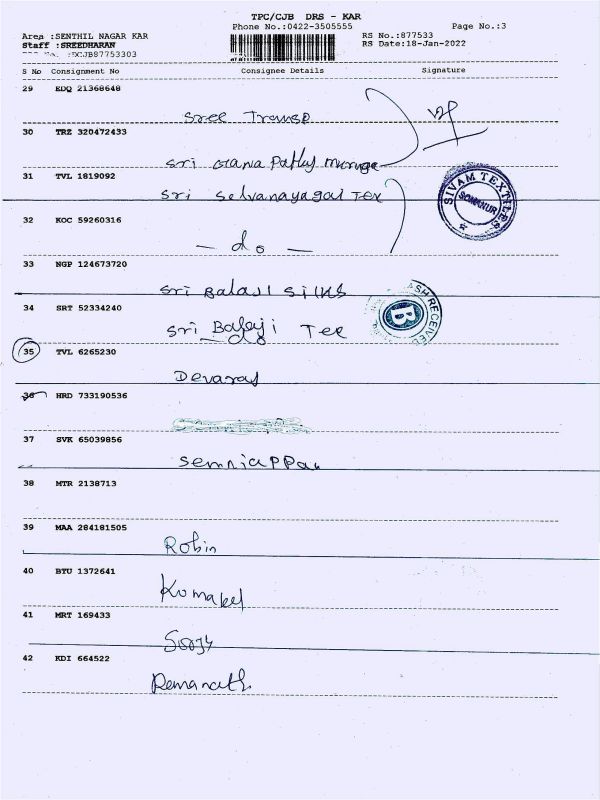 TPC/CJB DRS - KAR
Phone No.:0422-3505555 Page No.:3
Area :SENTHIL NAGAR KAR RS No.:877533
Staff :SREEDHARAN RS Date:18-Jan-2022
S No Consignment No Consignee Details Signature
29 EDQ 21368648
Sree Transp
30 TRZ 320472433
Sri
31 TVL 1819092
Sri Selvanayagai Tex
SIVAM TEXTILES
SOMANUR
32 KOC 59260316
- do -
33 NGP 124673720
Sri Balaji Silks
34 SRT 52334240
Sri Balaji Tex
CASH RECEIVED
B
35 TVL 6265230
Devaraj
36 HRD 733190536
37 SVK 65039856
38 MTR 2138713
39 MAA 284181505
Robin
40 BTU 1372641
41 MRT 169433
42 KDI 664522